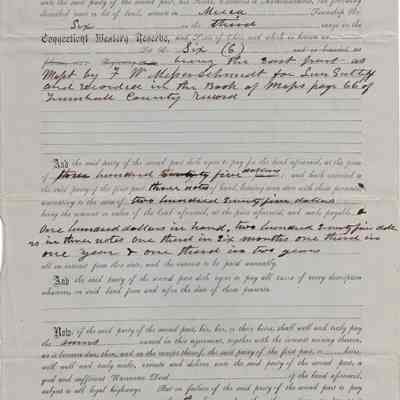 unto the said party of the second part, his Heirs, Executors or Administrators, the following
described tract or lot of land, situate in Mecca Township, No.
Six in the third range in the
Connecticut Western Reserve, and State of Ohio and which is known as
Lot No. Six (6) and is bounded as
being the East part as
Mapt by F W Messerschmidt for
and recorded in the Book of Maps page 66 of
Trumbull County Record
And the said party of the second part doth agree to pay for the land aforesaid, at the price
of three hundred twenty five dollars and hath executed to
the said party of the first part, three notes of hand, bearing even date with these presents,
amounting to the sum of two hundred twenty five dollars
being the amount or value of the land aforesaid, at the price aforesaid, and made payable,
One hundred dollars in hand, two hundred twenty five dolla
rs in three notes one third in six months one third in
one year & one third in two years
all on interest from this date, and the interest to be paid annually.
And the said party of the second part doth agree to pay all taxes of every description
whatever, on said land from and after the date of these presents.
Now, if the said party of the second part, his heirs, or their heirs, shall well and truly pay
the named in this agreement, together with the interest arising thereon,
as it becomes due, then, and on the receipt thereof, the said party of the first part, or heirs,
will well and truly make, execute and deliver, unto the said party of the second part, a
good and sufficient Warrantee Deed of the land aforesaid,
subject to all legal highways. But on failure of the said party of the second part to pay